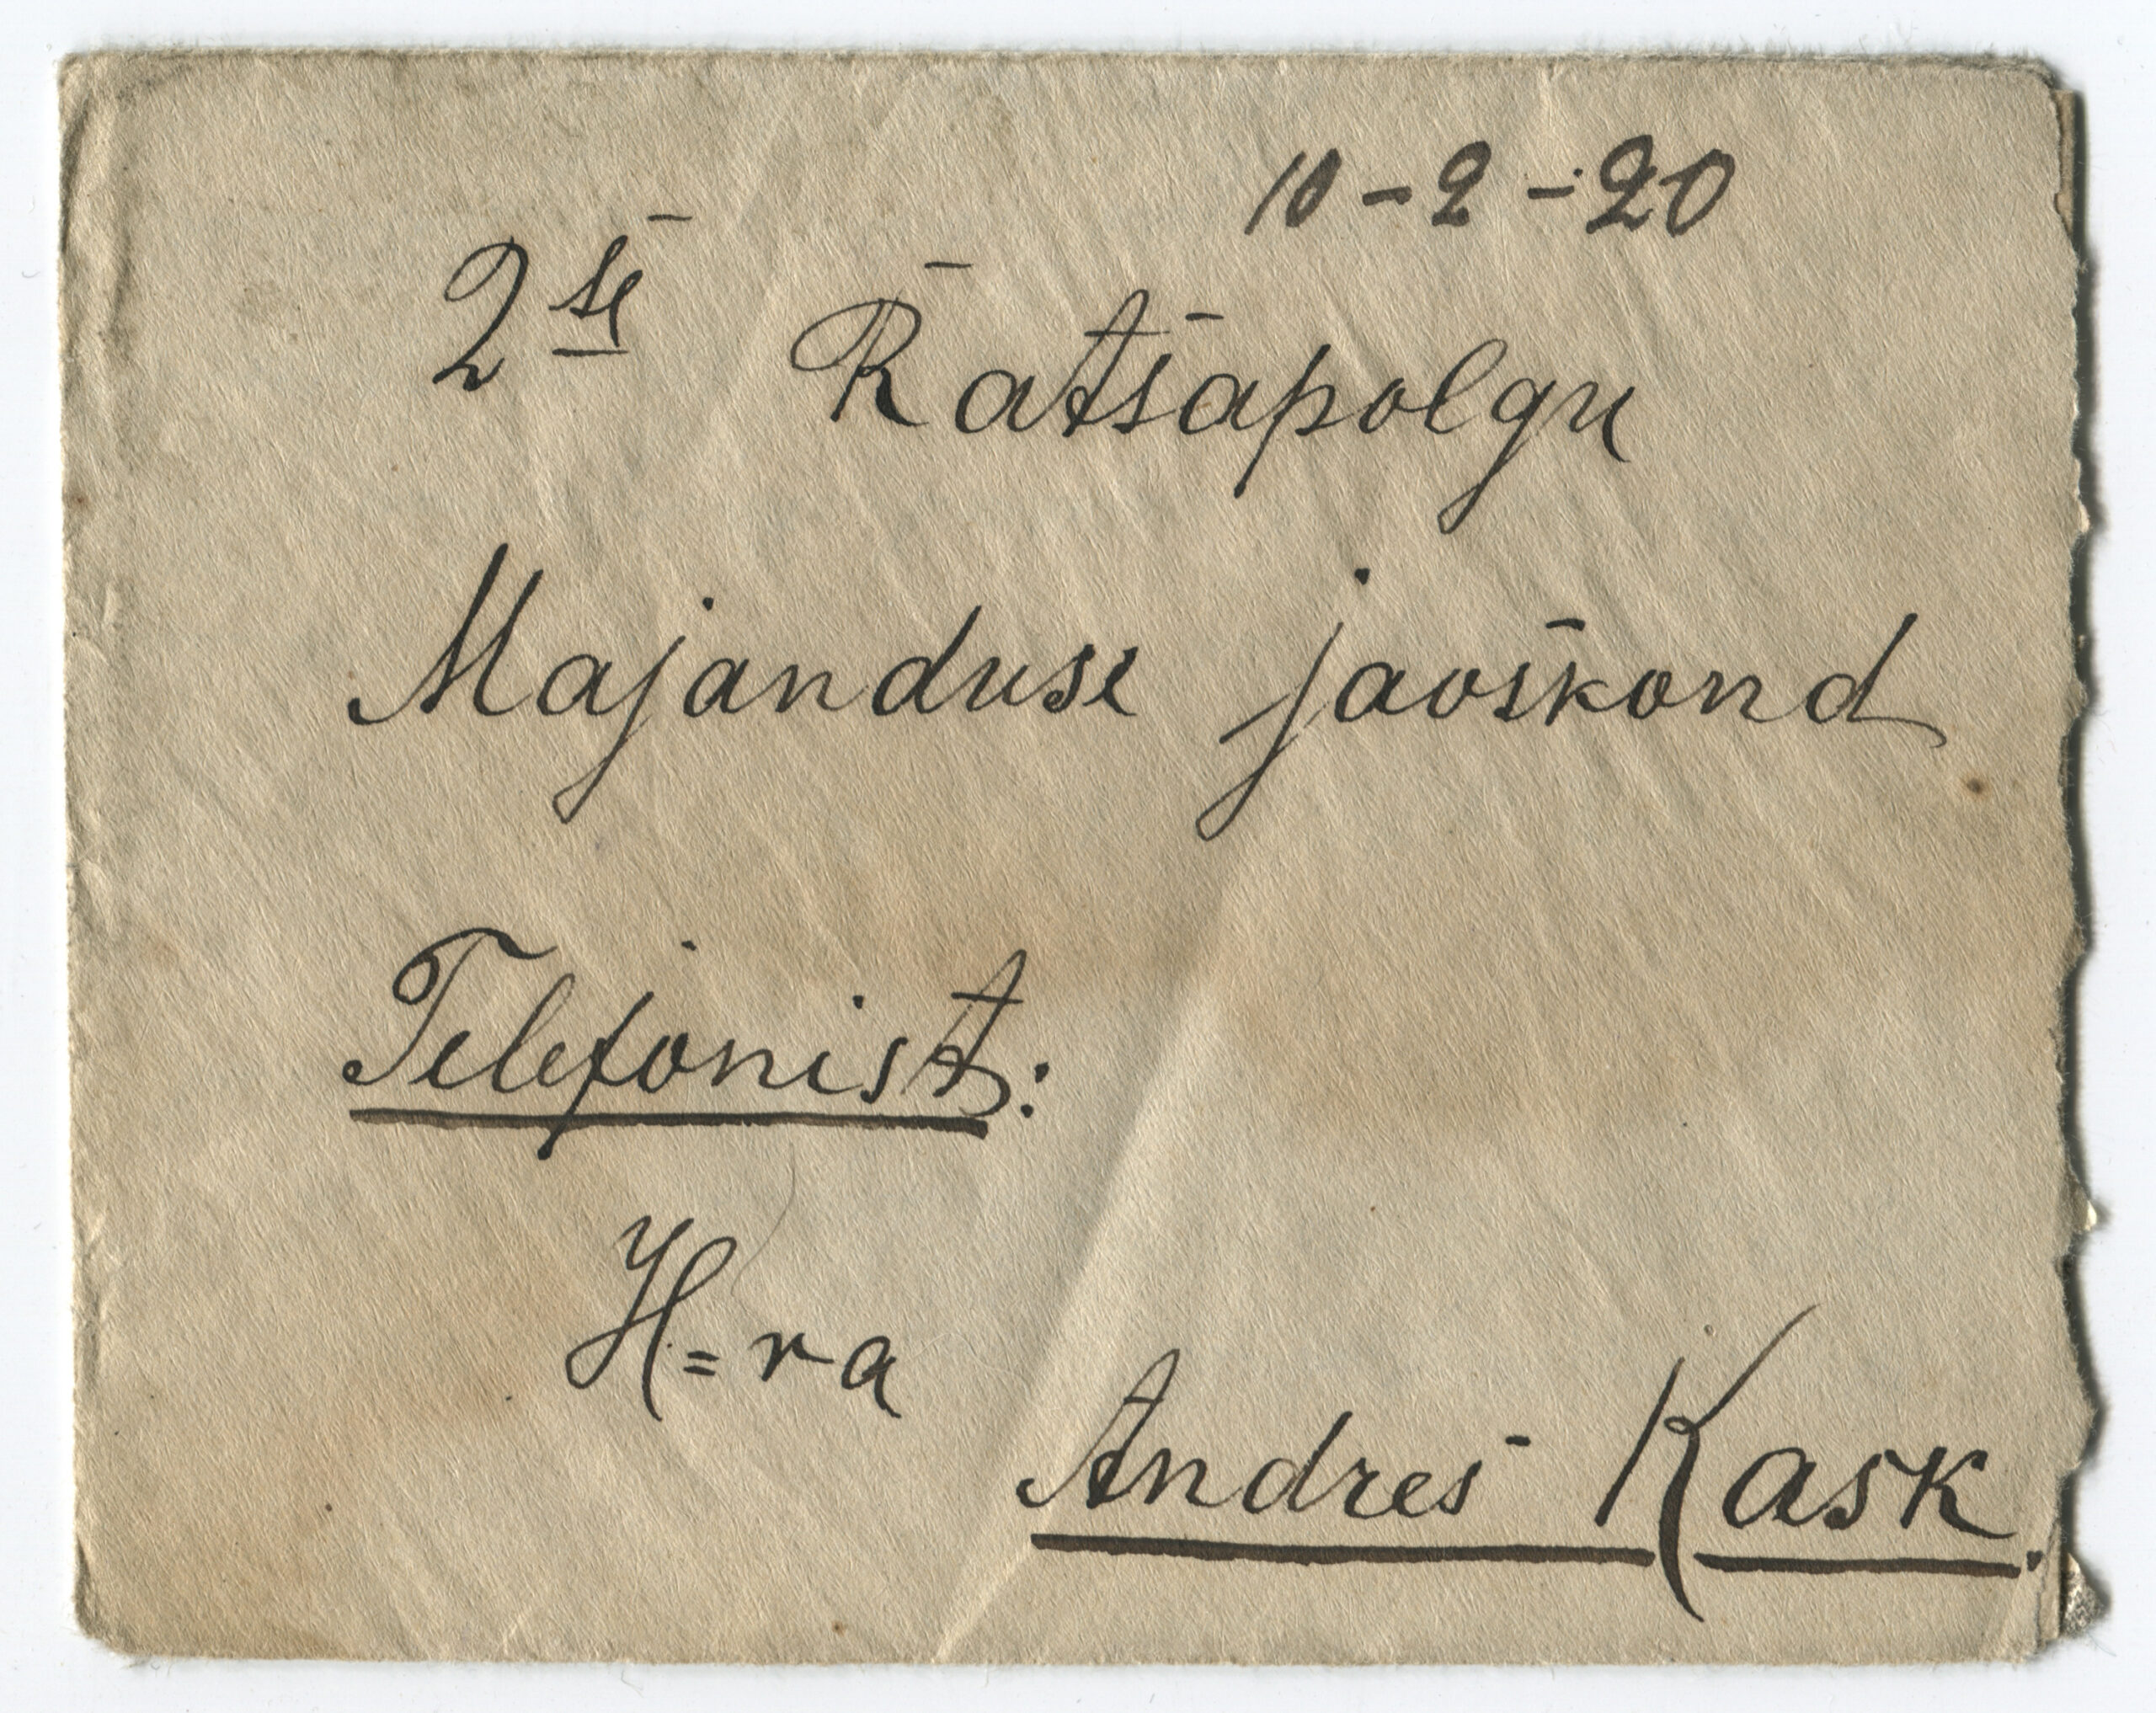 10-2-20
2se Ratsapolgu
Majanduse jaoskond
Telefonist:
H=ra
Andres Kask.